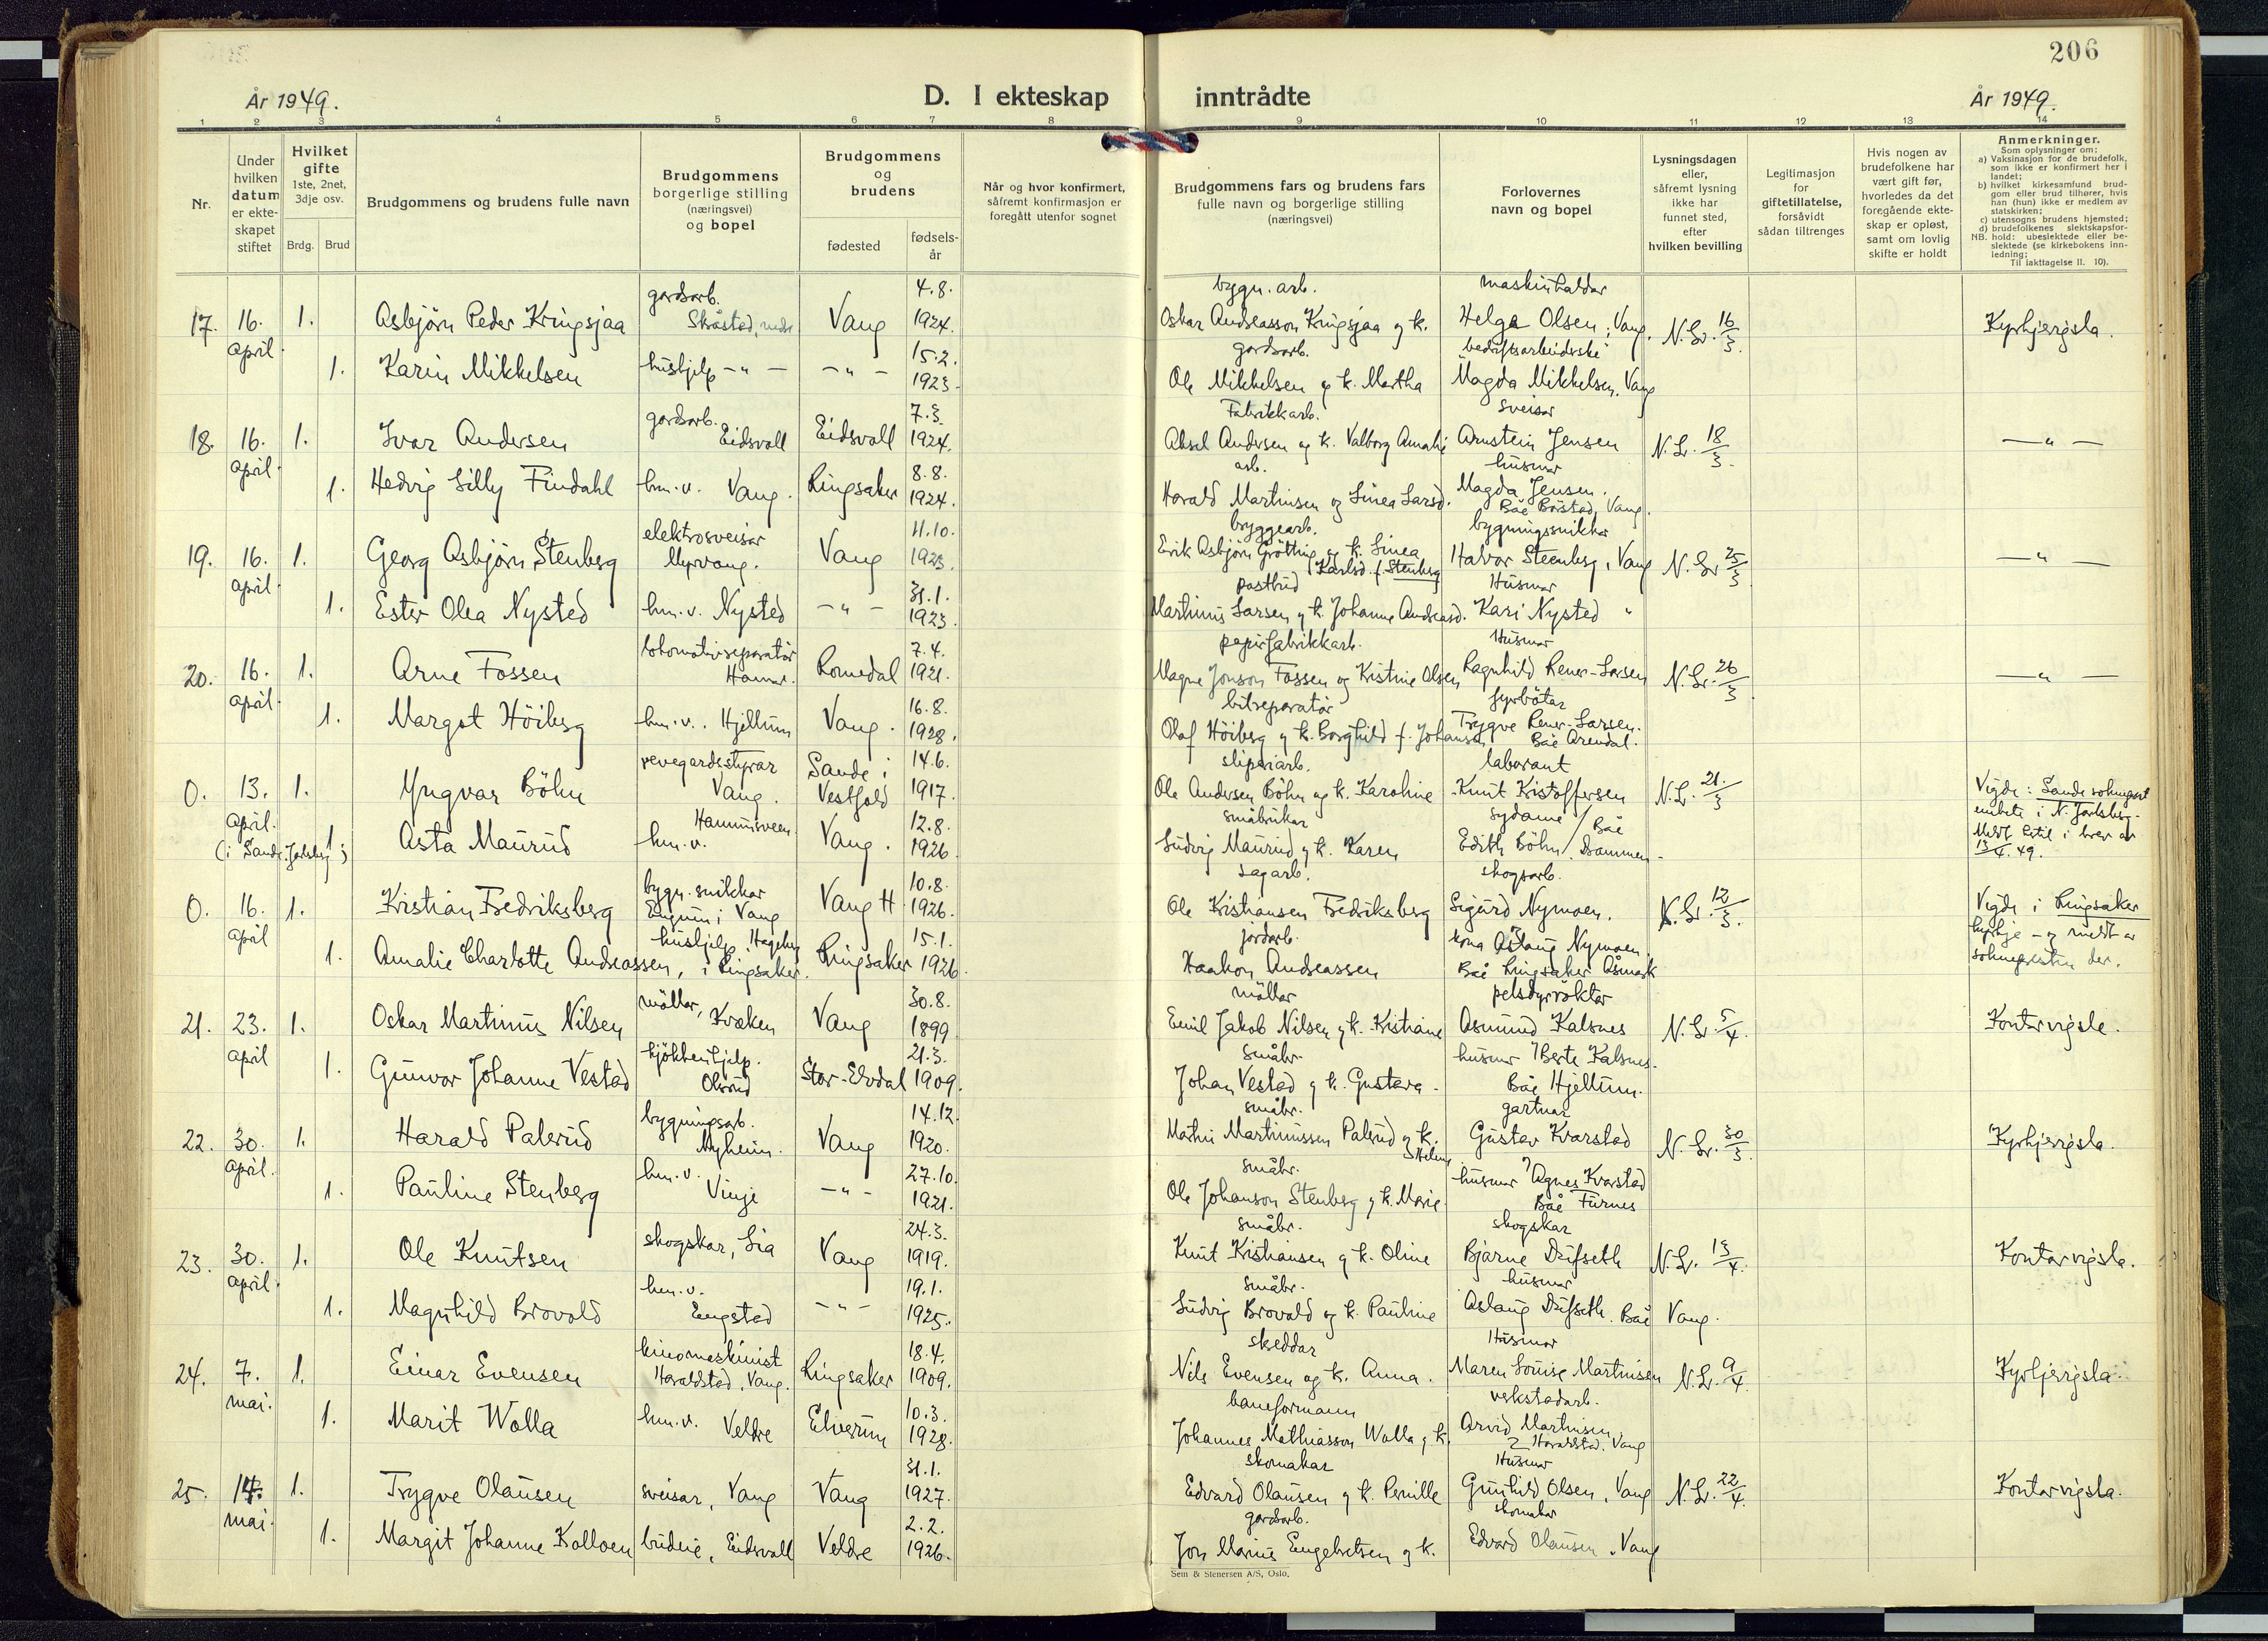 206
År 1949.
D. I ekteskap inntrådte
År 1949.
1 2 3 4 5 6 7 8 9 10 11 12 13 14
Nr.
Under hvilken datum er ekteskapet stiftet
Hvilket gifte
1ste, 2net, 3dje osv.
Brdg. Brud
Brudgommens og brudens fulle navn
Brudgommens borgerlige stilling (næringsvei) og bopel
Brudgommens og brudens
fødested
fødselsår
Når og hvor konfirmert, såfremt konfirmasjon er foregått utenfor sognet
Brudgommens fars og brudens fars fulle navn og borgerlige stilling (næringsvei)
Forlovernes navn og bopel
Lysningsdagen eller, såfremt lysning ikke har funnet sted, efter hvilken bevilling
Legitimasjon for giftetillatelse, forsåvidt sådan tiltrenges
Hvis nogen av brudefolkene har vært gift før, hvorledes da det foregående ekteskap er opløst, samt om lovlig skifte er holdt
Anmerkninger.
Som oplysninger om:
a) Vaksinasjon for de brudefolk, som ikke er konfirmert her i landet;
b) hvilket kirkesamfund brudgom eller brud tilhører, hvis han (hun) ikke er medlem av statskirken;
c) utensogns brudens hjemsted;
d) brudefolkenes slektskapsforhold: ubeslektede eller beslektede (se kirkebokens innledning;
NB. Til iakttagelse II. 10).
17. 16. april 1. Asbjörn Peder Kringsjaa gardsarb. Skåstad, nedre Vang 4.8. 1924. bygn. arb. Oskar Andreasson Kringsjaa og k. maskinhaldar Helge Olsen, Vang. N. Lr. 16/3. Kyrkjevigsla.
1. Karin Mikkelsen hushjelp -"- -"- 15.2. 1923. gardsarb. Ole Mikkelsen og k. Martha bedriftsarbeiderske Magda Mikkelsen, Vang
18. 16. april 1. Ivar Andersen gardsarb. Eidsvoll Eidsvoll 7.3. 1924. Fabrikkarb. Aksel Andersen og k. Valborg Amalie sveisar Arnstein Jensen N. L. 18/3. -"-
1. Hedvig Lilly Findahl hm.v. Vang. Ringsaker 8.8. 1924. arb. Harald Martinsen og Linea Larsd. husmor Magda Jensen. Båe Börstad, Vang.
19. 16. april 1. Georg Asbjörn Stenberg elektrosveisar Myrvang. Vang 11.10. 1925. bryggearb. Erik Asbjörn Grötting og k. Linea Karlsd. f. Stenberg bygningssnikkar Halvor Steenberg, Vang N. Lr 25/3 -"-
1. Ester Olea Nysted hm.v. Nysted -"- 31.1. 1923. postbud Martinus Larsen og k. Johanne Andreasd. Husmor Kari Nysted "
20. 16. april 1. Arne Fossen lokomotivreparatör Hamar. Romedal 7.4. 1921. papirfabrikkarb. Magne Jonson Fossen og Kristine Olsen Husmor Ragnhild Rener-Larsen N. Lr. 26/3 -"-
1. Margot Höiberg hm.v. Hjellum Vang. 16.8. 1928. bilreparatör Olaf Höiberg og k. Borghild f. Johansen fyrbötar Trygve Rener-Larsen. Båe Arendal.
0. 13. april. (i Sande, Jarlsberg) 1. Yngvar Böhn revegardsstyrar Vang. Sande i Vestfold 14.6. 1917. sliperiarb. Ole Andersen Böhn og k. Karoline laborant Knut Kristoffersen N. L. 21./3 Vigde: Sande sokneprest embete i N. Jarlsberg. Meldt hertil i brev av 13/4. 49.
1 Asta Maurud hm.v. Hammersveen Vang. 12.8. 1926 småbrukar Ludvig Maurud og k. Karen sydame Edith Böhn / Båe Drammen
0. 16. april 1. Kristian Fredriksberg bygn. snikkar Engum i Vang Vang H 10.8. 1926. sagarb. Ole Kristiansen Fredriksberg skogsarb. Sigurd Nymoen. N. Lr. 12/3. Vigde i Ringsaker kyrkje - og meldt av soknepresten der.
1. Amalie Charlotte Andreassen, hushjelp, Hageberg i Ringsaker. Ringsaker 15.1. 1926. jordarb. Haakon Andreassen kona Aslaug Nymoen Båe Ringsaker Åsmark
21. 23. april 1. Oskar Martinus Nilsen möllar, Kvæken Vang 30.8. 1899 möllar Emil Jakob Nilsen og k. Kristiane pelsdyrröktar Asmund Kalsnes N. Lr. 5/4. Kontorvigsle.
1. Gunvor Johanne Vestad kjökkenhjelp. Olsrud Stor-Elvdal 21.3. 1909. småbr. Johan Vestad og k. Gustava husmor Berte Kalsnes. Båe Hjellum.
22. 30. april. 1. Harald Palerud bygningsarb. Nyheim. Vang 14.12. 1920. småbr. Mathis Martinussen Palerud og k. Helene gartnar Gustav Kvarstad N. Lr. 30/3. Kyrkjevigsla.
1. Pauline Stenberg hm.v. Vinje -"- 27.10. 1921. småbr. Ole Johanson Stenberg og k. Marie husmor Agnes Kvarstad Båe Furnes
23. 30. april. 1. Ole Knutsen skogskar, Lia Vang 24.3. 1919. småbr. Knut Kristiansen og k. Oline skogskar Bjarne Dufseth N. L. 13/4. Kontorvigsla.
1. Magnhild Brovold hm.v. Engstad -"- 19.1. 1925. småbr. Ludvig Brovold og k. Pauline husmor Aslaug Dufseth. Båe Vang.
24. 7. mai. 1. Einar Evensen kinomaskinist Haraldstad, Vang. Ringsaker 18.4. 1909. skreddar Nils Evensen og k. Anna. Husmor Maren Louise Martinsen N. L. 9/4. Kyrkjevigsla.
1. Marit Wolla hm.v. Veldre Elverum 10.3. 1928. baneformann Johannes Mathiasson Wolla og k. verkstadarb. Arvid Martinsen Haraldstad, Vang
25. 14. mai. 1. Trygve Olausen sveisar, Vang Vang 31.1. 1927. skomakar Edvard Olausen og k. Pernille Husmor Gunhild Olsen, Vang N. Lr. 22/4. Kontorvigsla.
1. Margit Johanne Kolloen budeie, Eidsvoll Veldre 2.2. 1926. gardsarb. Jon Marius Engebretsen og k. skomakar Edvard Olausen, Vang
Sem & Stenersen A/S, Oslo.